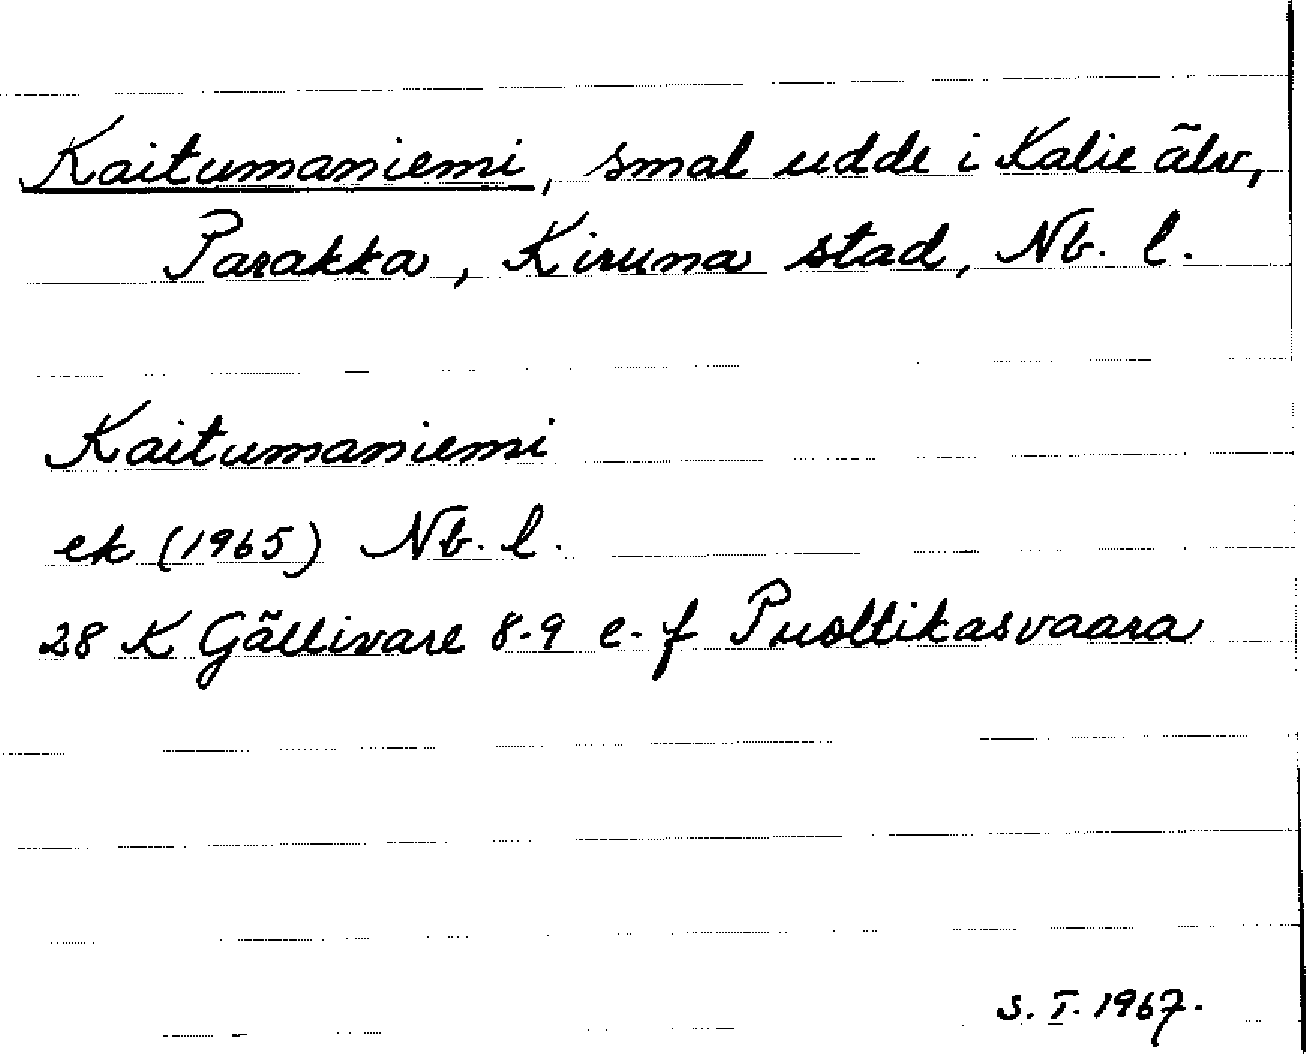 Kaitumaniemi, smal udde i Kalix älv,
Parakka, Kiruna stad, Nb. l.
Kaitumaniemi
ek (1965) Nb. l.
28 K Gällivare 8-9 e-f Puoltikasvaara
S. I. 1967.